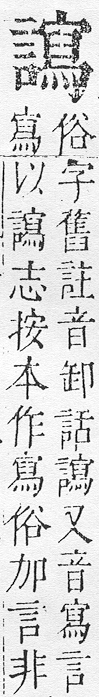 謆
俗字舊註音卸話謆又音寫言
寫以謆志按本作寫俗加言非